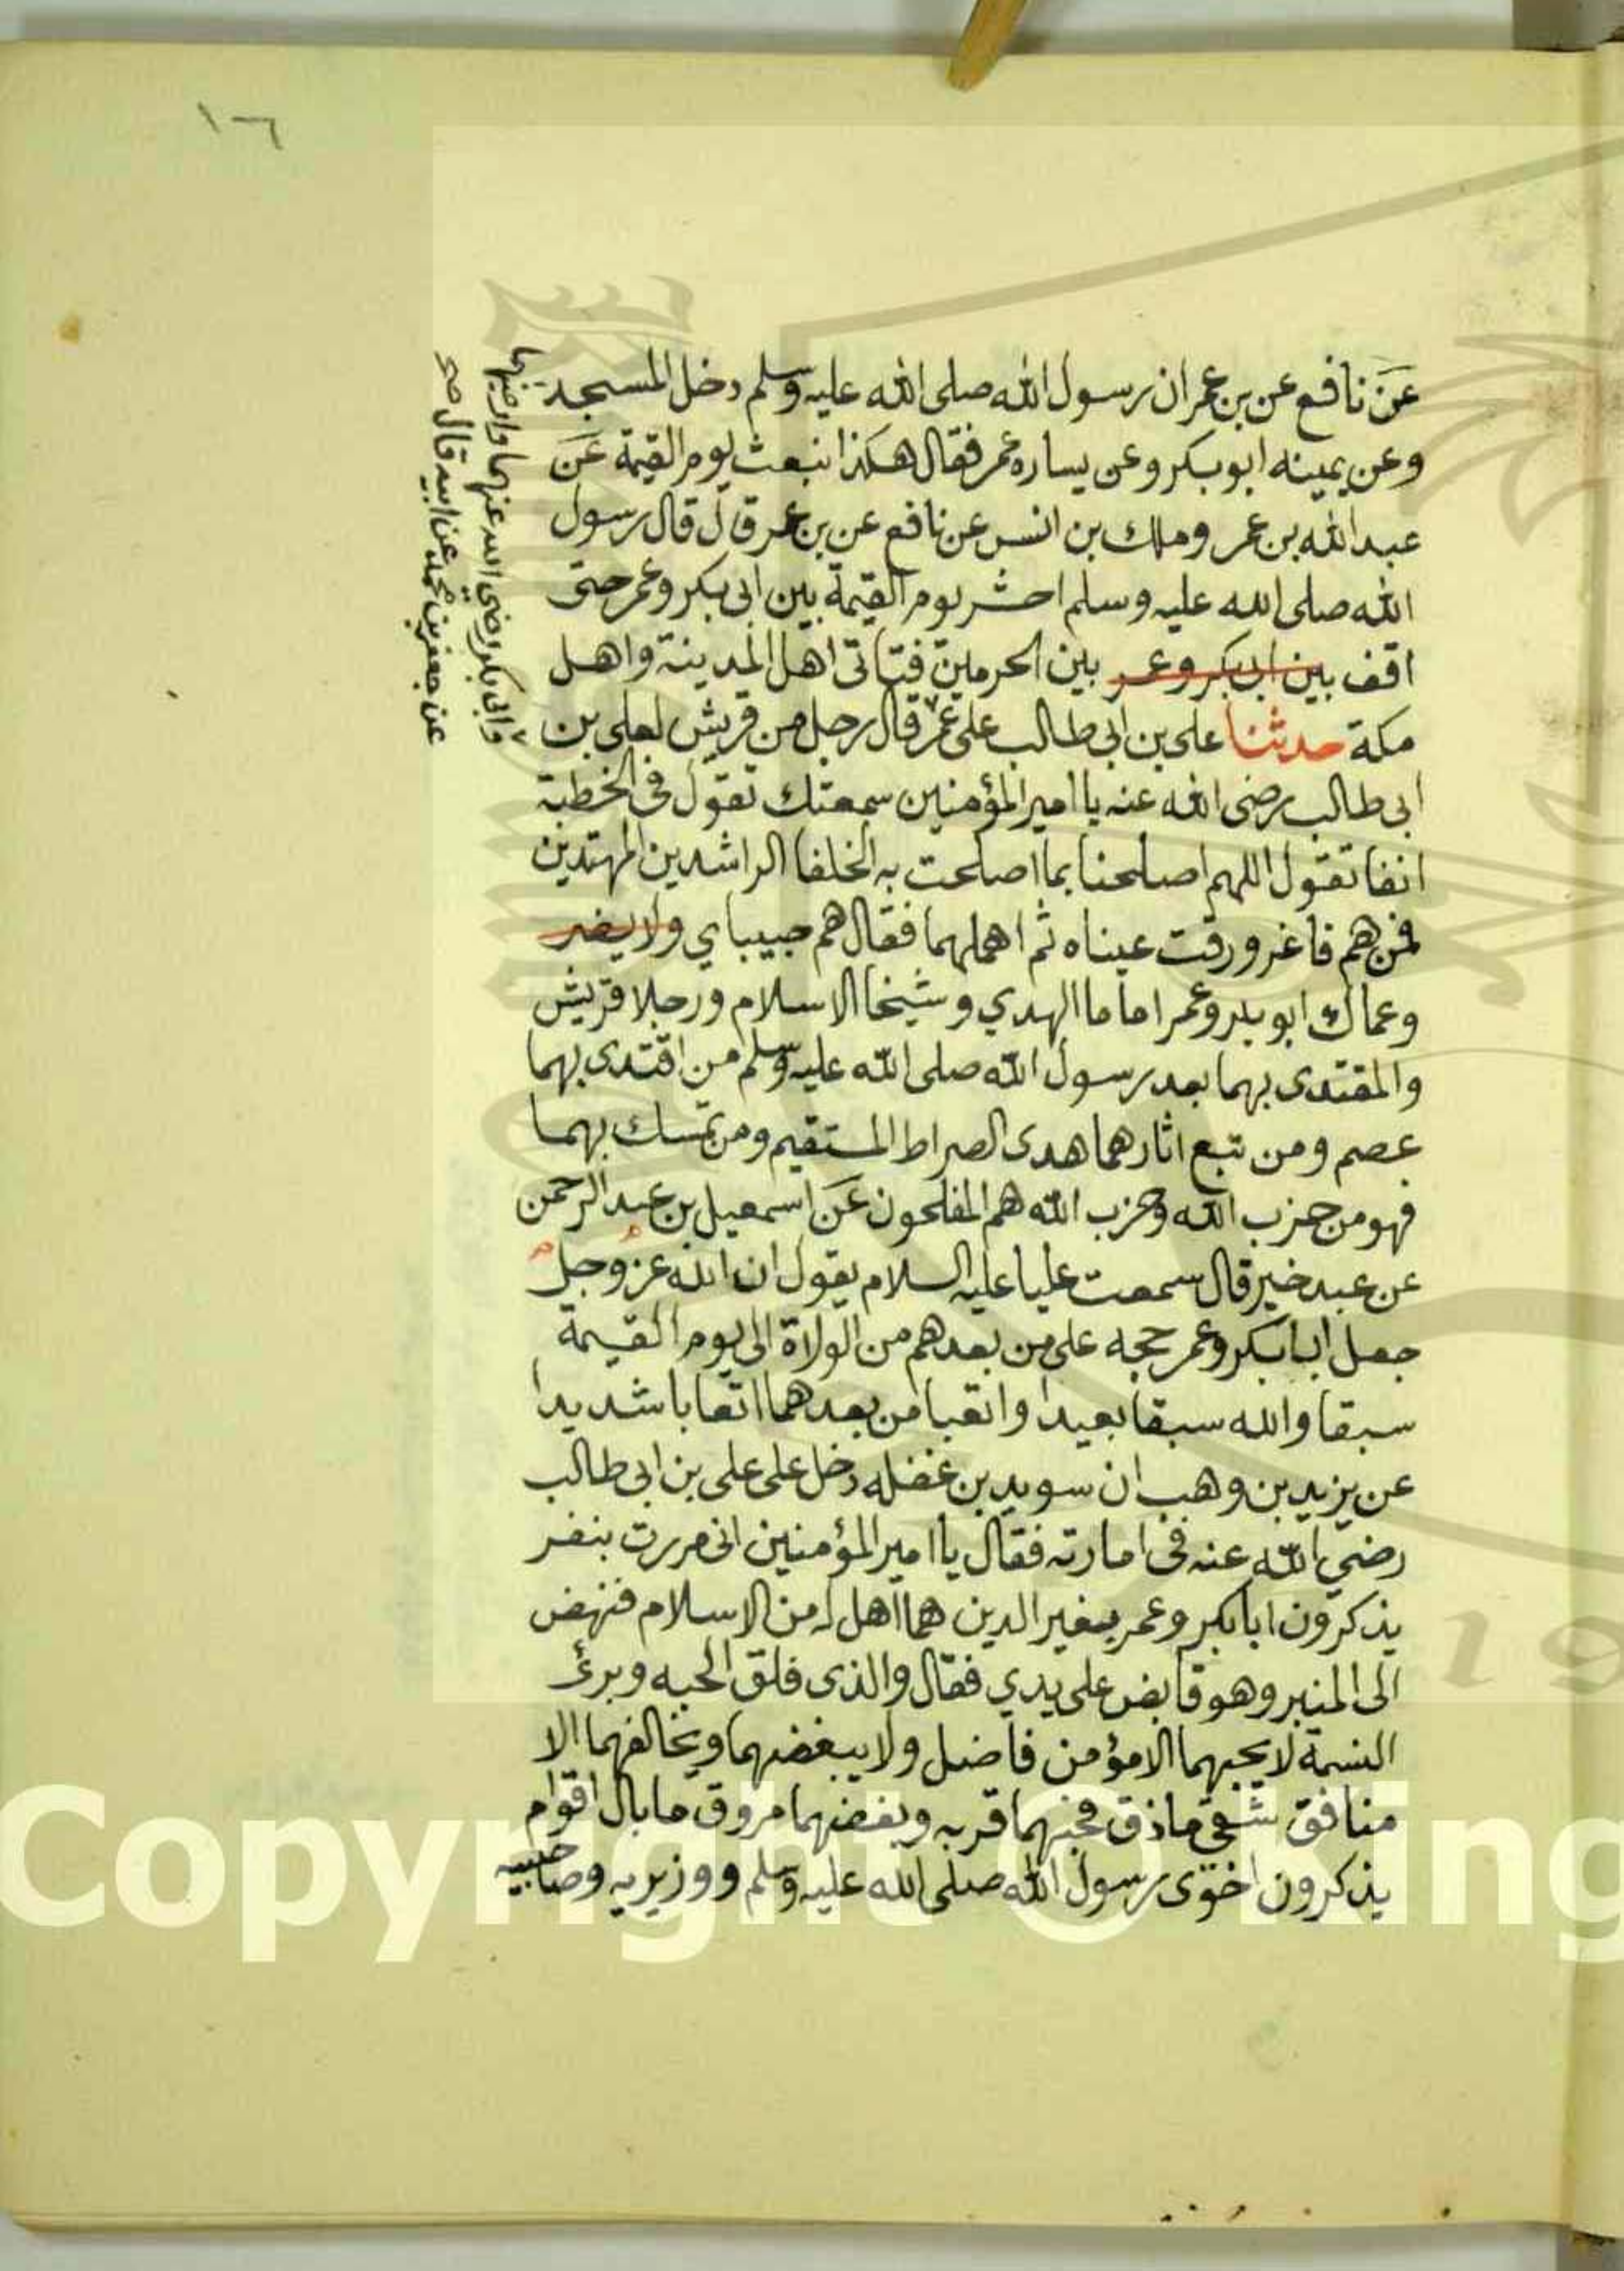 ١٦
عن نافع عن بن عمر ان رسول الله صلى الله عليه وسلم دخل المسجد
وعن يمينه ابو بكر وعن يساره عمر فقال هكذا نبعث يوم القيمة عن
عبد الله بن عمر وملك بن انس عن نافع عن بن عمر قال قال رسول
الله صلى الله عليه وسلم احشر يوم القيمة بين ابى بكر وعمر حتى
اقف بين ابى بكر وعمر بين الحرمين فتاتى اهل المدينة واهل
مكة حدثنا على بن ابى طالب على عمر قال رجل من قريش لعلى بن
ابى طالب رضى الله عنه يا امير المؤمنين سمعتك تقول فى الخطبة
انفا تقول اللهم اصلحنا بما اصلحت به الخلفا الراشدين المهتدين
فمن هم فاغرورقت عيناه ثم اهملهما فقال هم حبيباي ولا يضر
وعماك ابو بكر وعمر اماما الهدي وشيخا الاسلام ورجلا قريش
والمقتدى بهما بعد رسول الله صلى الله عليه وسلم من اقتدى بهما
عصم ومن تبع اثارهما هدى الصراط المستقيم ومن تمسك بهما
فهو من حزب الله وحزب الله هم المفلحون عن اسمعيل بن عبد الرحمن
عن عبد خير قال سمعت عليا عليه السلام يقول ان الله عز وجل
جعل ابا بكر وعمر حجه على من بعدهم من الولاة الى يوم القيمة
سبقا والله سبقا بعيدا واتعبا من بعدهما اتعابا شديدا
عن يزيد بن وهب ان سويد بن غفله دخل على على بن ابى طالب
رضي الله عنه فى امارته فقال يا امير المؤمنين انى مررت بنفر
يذكرون ابا بكر وعمر بغير الدين هما اهل له من الاسلام فنهض
الى المنبر وهو قابض على يدي فقال والذى فلق الحبه وبرئ
النسمة لا يحبهما الا مؤمن فاضل ولا يبغضهما ويخالفهما الا
منافق شقى ماذق فحبهما قربه وبغضهما مروق ما بال اقوام
يذكرون اخوى رسول الله صلى الله عليه وسلم ووزيريه وصاحبيه
وابى بكر رضى الله عنهما وارضهما
عن جعفر بن محمد عن ابيه قال
Copyright © King
19